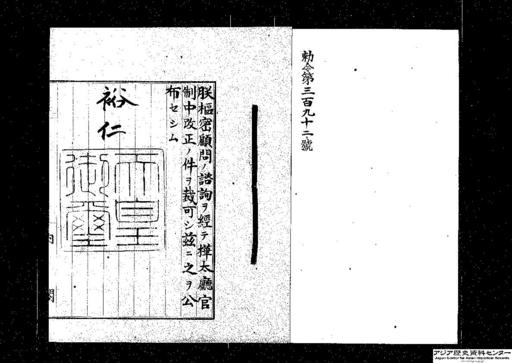 勅令第三百九十二號
朕樞密顧問ノ諮詢ヲ經テ樺太廳官
制中改正ノ件ヲ裁可シ茲ニ之ヲ公
布セシム
裕仁
天皇
御璽
内
閣
アジア歴史資料センター
Japan Center for Asian Historical Records